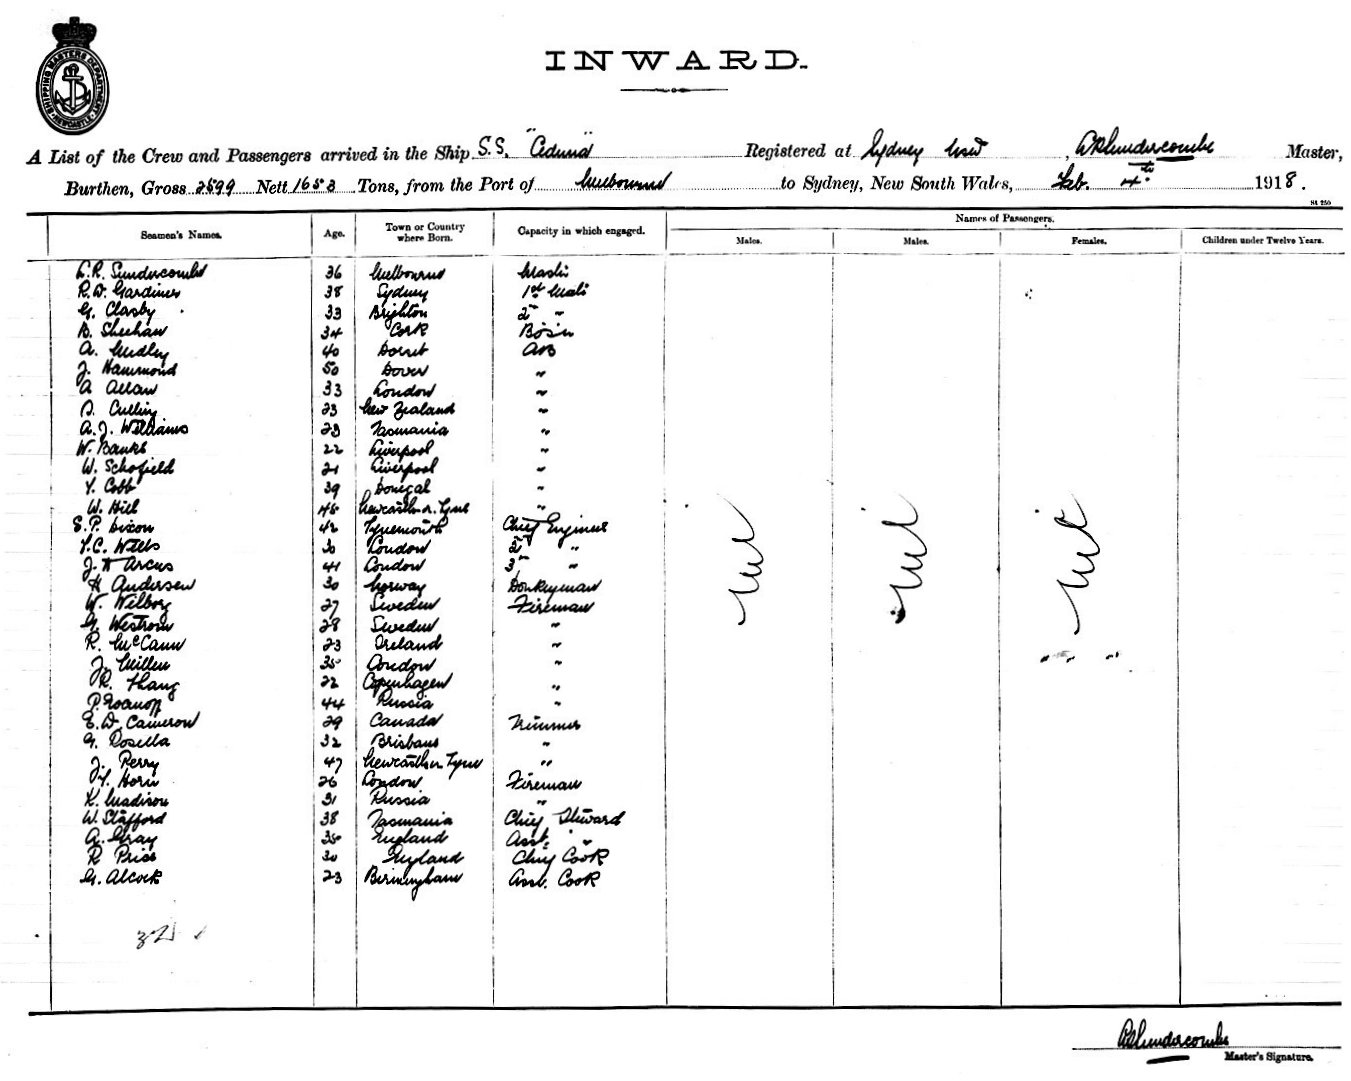 SHIPPING MASTERS DEPARTMENT NEWCASTLE
INWARD.
A List of the Crew and Passengers arrived in the Ship S.S. "Ceduna" Registered at Sydney NSW, Master,
Burthen, Gross 2599 Nett 1653 Tons, from the Port of Melbourne to Sydney, New South Wales, Feb. 4th 1918.
Names of Passengers.
Seamen's Names. Age. Town or Country where Born. Capacity in which engaged. Males. Males. Females. Children under Twelve Years.
36 Melbourne Master
R. W. Gardiner 38 Sydney 1st Mate
G. Clasby 33 Brighton 2nd "
B. Sheehan 34 Cork Bosn
A. Medley 40 Dorset AB
J. Hammond 50 Dover "
A Allan 33 London "
Culling 23 New Zealand "
A. J. Williams 23 Tasmania "
W. Banks 22 Liverpool "
W. Schofield 21 Liverpool "
Cobb 39 Donegal "
W. Hill 45 Newcastle on Tyne "
E. P. Dixon 42 Tynemouth Chief Engineer
C. Wells 30 London 2nd "
J. H Arcus 41 London 3rd "
H Andersen 30 Norway Donkeyman
W. Wilborg 27 Sweden Fireman
G. Westrom 28 Sweden "
R. McCann 23 Ireland "
J. Millen 35 London "
R. Thang 22 Copenhagen "
P. Ivanoff 44 Russia "
E. D. Cameron 29 Canada Trimmer
G. Rosella 32 Brisbane "
J. Perry 47 Newcastle on Tyne "
Horn 26 London Fireman
K. Madison 31 Russia "
W. Stafford 38 Tasmania Chief Steward
A. Gray 35 England Asst. "
R Price 30 England Chief Cook
G. Alcock 23 Birmingham Asst. Cook
Nil Nil Nil
32
Master's Signature.